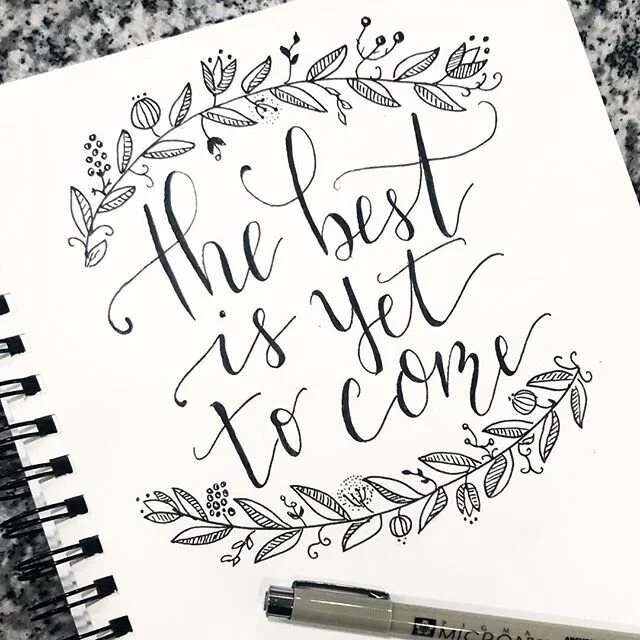 the best
is yet
to come
PIGMA
MICRON